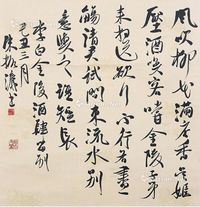 風吹柳花滿店香吳姬
壓酒喚客嘗金陵子弟
來相送欲行不行各盡
觴請君試問東流水別
意與之誰短長
李白金陵酒肆留別
己丑三月
陳振濂